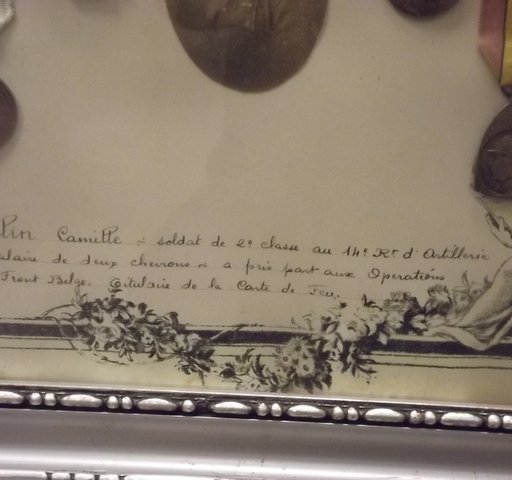 lin Camille - soldat de 2e classe au 14e Rt d'Artillerie
ulaire de deux chevrons - a pris part aux Operations
Front Belge. Titulaire de la Carte de Feu.